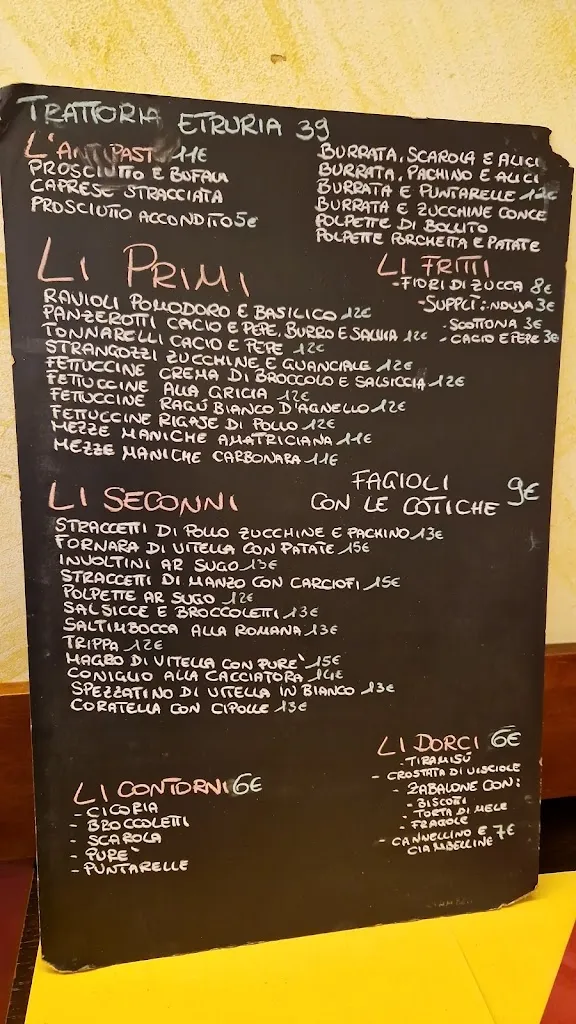 TRATTORIA ETRURIA 39
L'ANTIPASTI 11€
PROSCIUTTO E BUFALA
CAPRESE STRACCIATA
PROSCIUTTO ACCONDITO 5€
BURRATA, SCAROLA E ALICI
BURRATA, PACHINO E ALICI
BURRATA E PUNTARELLE 12€
BURRATA E ZUCCHINE CONCE
POLPETTE DI BOLLITO
POLPETTE PORCHETTA E PATATE
LI FRITTI
-FIORI DI ZUCCA 8€
-SUPPLI: NDUJA 3€
- SCOTTONA 3€
- CACIO E PEPE 3€
LI PRIMI
RAVIOLI POMODORO E BASILICO 12€
PANZEROTTI CACIO E PEPE, BURRO E SALVIA 12€
TONNARELLI CACIO E PEPE 12€
STRANGOZZI ZUCCHINE E GUANCIALE 12€
FETTUCCINE CREMA DI BROCCOLO E SALSICCIA 12€
FETTUCCINE ALLA GRICIA 12€
FETTUCCINE RAGÚ BIANCO D'AGNELLO 12€
FETTUCCINE RIGAJE DI POLLO 12€
MEZZE MANICHE AMATRICIANA 11€
MEZZE MANICHE CARBONARA 11€
FAGIOLI
CON LE COTICHE 9€
LI SECONNI
STRACCETTI DI POLLO ZUCCHINE E PACHINO 13€
FORNARA DI VITELLA CON PATATE 15€
INVOLTINI AR SUGO 13€
STRACCETTI DI MANZO CON CARCIOFI 15€
POLPETTE AR SUGO 12€
SALSICCE E BROCCOLETTI 13€
SALTIMBOCCA ALLA ROMANA 13€
TRIPPA 12€
MAGRO DI VITELLA CON PURE' 15€
CONIGLIO ALLA CACCIATORA 14€
SPEZZATINO DI VITELLA IN BIANCO 13€
CORATELLA CON CIPOLLE 13€
LI CONTORNI 6€
- CICORIA
- BROCCOLETTI
- SCAROLA
- PURE'
- PUNTARELLE
LI DORCI 6€
- TIRAMISÚ
- CROSTATA DI VISCIOLE
- ZABALONE CON:
- BISCOTTI
- TORTA DI MELE
- FRAGOLE
- CANNELLINO E 7€
CIAMBELLINE